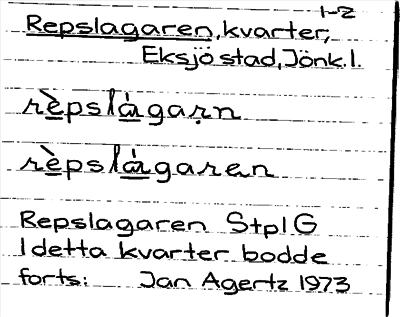 1-2
Repslagaren, kvarter,
Eksjö stad, Jönk.l.
rèpslàgaṛn
rèpslàgaren
Repslagaren Stpl G
I detta kvarter bodde
forts: Jan Agertz 1973